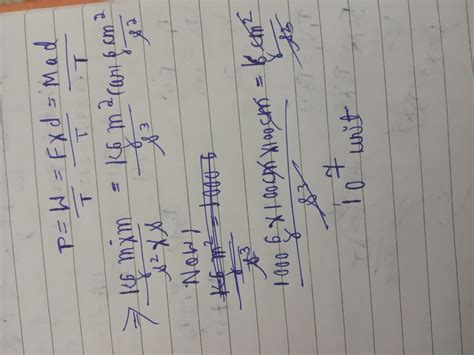 P = W/T = F×d/T = Mad/T
⇒ Kg m×m/s²×s = Kg m²/s³ g cm²/s²
Now,
Kg m² = 1000 g/s³
1000 g × 100cm × 100cm/s³ = g cm²/s³
10⁷ unit